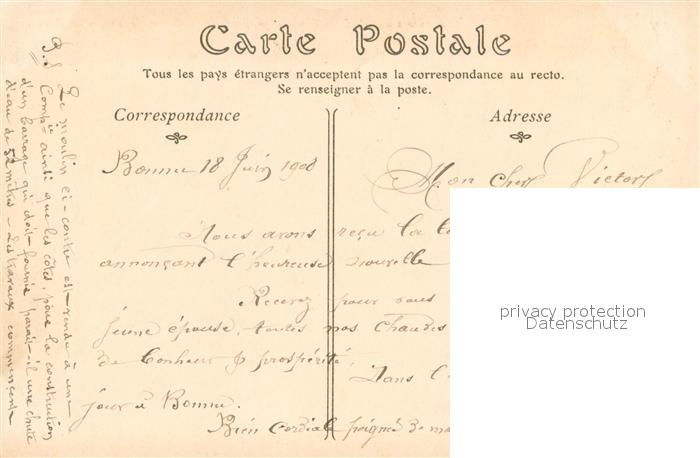 Carte Postale
Tous les pays étrangers n'acceptent pas la correspondance au recto.
Se renseigner à la poste.
Correspondance
Adresse
18 Juin 1908
Mon cher Victor
Nous avons reçu la
annonçant l'heureuse nouvelle
Recevez pour vous
jeune épouse, toutes nos chaudes
de bonheur & prospérité.
Dans l'
jour à
Bien cordiale poignée de
P.S. Le moulin ci-contre est vendu à une
Compie ainsi que les côtes, pour la construction
d'un barrage qui doit fournir parait-il une chute
d'eau de 52 mètres - Les travaux commencent
privacy protection
Datenschutz